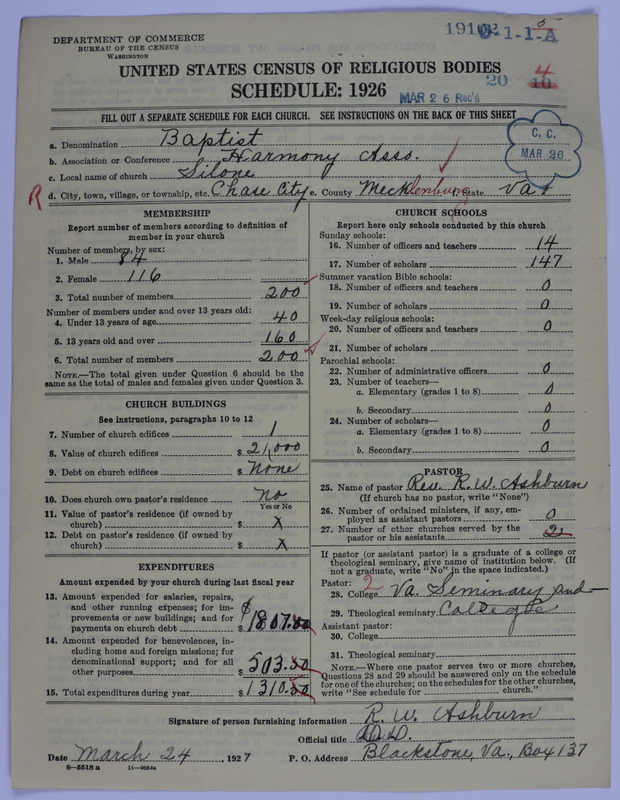 DEPARTMENT OF COMMERCE
BUREAU OF THE CENSUS
WASHINGTON
1910
0-1-1-A
5
UNITED STATES CENSUS OF RELIGIOUS BODIES
SCHEDULE: 1926
20
4
10
MAR 26 Rec'd
FILL OUT A SEPARATE SCHEDULE FOR EACH CHURCH. SEE INSTRUCTIONS ON THE BACK OF THIS SHEET
C. C.
MAR 26
a. Denomination Baptist
b. Association or Conference Harmony Asso.
c. Local name of church Silone
R d. City, town, village, or township, etc. Chase City e. County Mecklenburg f. State Va.
MEMBERSHIP
Report number of members according to definition of
member in your church
Number of members, by sex:
1. Male 84
2. Female 116
3. Total number of members 200
Number of members under and over 13 years old:
4. Under 13 years of age 40
5. 13 years old and over 160
6. Total number of members 200
NOTE.—The total given under Question 6 should be
same as the total of males and females given under Question 3.
CHURCH BUILDINGS
See instructions, paragraphs 10 to 12
7. Number of church edifices 1
8. Value of church edifices $ 21,000
9. Debt on church edifices $ None
10. Does church own pastor's residence No
Yes or No
11. Value of pastor's residence (if owned by
church) $ X
12. Debt on pastor's residence (if owned by
church) $ X
EXPENDITURES
Amount expended by your church during last fiscal year
13. Amount expended for salaries, repairs,
and other running expenses; for im-
provements or new buildings; and for
payments on church debt $ 1807.00
14. Amount expended for benevolences, in-
cluding home and foreign missions; for
denominational support; and for all
other purposes $ 503.50
15. Total expenditures during year $ 1310.50
CHURCH SCHOOLS
Report here only schools conducted by this church
Sunday schools:
16. Number of officers and teachers 14
17. Number of scholars 147
Summer vacation Bible schools:
18. Number of officers and teachers 0
19. Number of scholars 0
Week-day religious schools:
20. Number of officers and teachers 0
21. Number of scholars
Parochial schools:
22. Number of administrative officers 0
23. Number of teachers—
a. Elementary (grades 1 to 8) 0
b. Secondary 0
24. Number of scholars—
a. Elementary (grades 1 to 8) 0
b. Secondary 0
PASTOR
25. Name of pastor Rev. R. W. Ashburn
(If church has no pastor, write "None")
26. Number of ordained ministers, if any, em-
ployed as assistant pastors 0
27. Number of other churches served by the
pastor or his assistants 2
If pastor (or assistant pastor) is a graduate of a college or
theological seminary, give name of institution below. (If
not a graduate, write "No" in the space indicated.)
Pastor: 2
28. College Va. Seminary and
29. Theological seminary College
Assistant pastor:
30. College
31. Theological seminary
NOTE.—Where one pastor serves two or more churches,
Questions 28 and 29 should be answered only on the schedule
for one of the churches; on the schedules for the other churches,
write "See schedule for church."
Signature of person furnishing information R. W. Ashburn
Official title D.D.
Date March 24, 1927 P. O. Address Blackstone, Va., Box 137
8-5518a 11-9054a